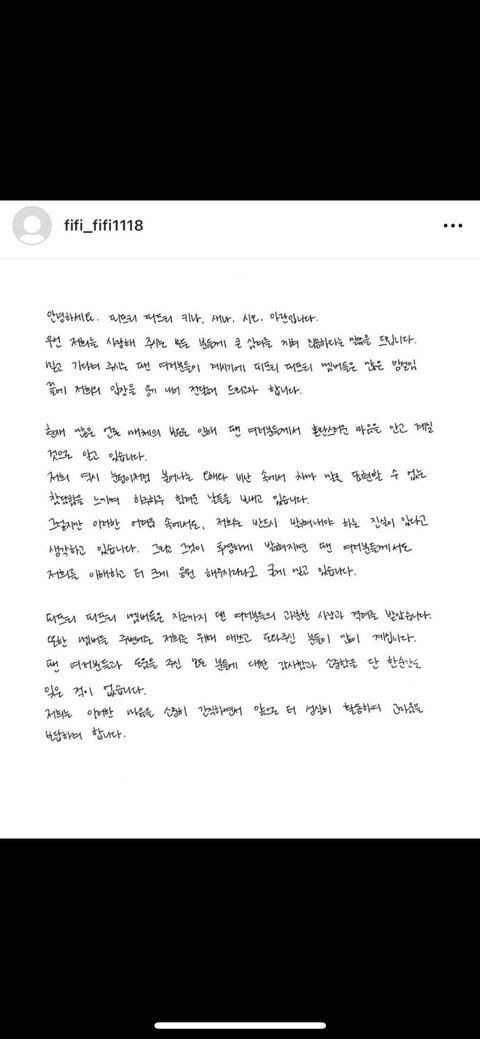 fifi_fifi1118
안녕하세요. 피프티 피프티 키나, 새나, 시오, 아란입니다.
우선 저희를 사랑해 주시는 모든 분들께 큰 심려를 끼쳐 죄송하다는 말씀을 드립니다.
믿고 기다려 주시는 팬 여러분들이 계시기에 피프티 피프티 멤버들은 많은 망설임
끝에 저희의 입장을 용기 내어 전달해 드리고자 합니다.
현재 많은 언론 매체의 보도로 인해 팬 여러분들께서 혼란스러운 마음을 안고 계실
것으로 알고 있습니다.
저희 역시 눈덩이처럼 불어나는 오해와 비난 속에서 차마 말로 표현할 수 없는
참담함을 느끼며 하루하루 힘겨운 날들을 보내고 있습니다.
그렇지만 이러한 어려움 속에서도, 저희는 반드시 밝혀내야 하는 진실이 있다고
생각하고 있습니다. 그리고 그것이 투명하게 밝혀지면 팬 여러분들께서도
저희를 이해하고 더 크게 응원 해주시리라고 굳게 믿고 있습니다.
피프티 피프티 멤버들은 지금까지 팬 여러분들의 과분한 사랑과 격려를 받았습니다.
또한 멤버들 주변에는 저희를 위해 애쓰고 도와주신 분들이 많이 계십니다.
팬 여러분들과 도움을 주신 모든 분들에 대한 감사함과 소중함을 단 한순간도
잊은 적이 없습니다.
저희는 이러한 마음을 소중히 간직하면서 앞으로 더 성실히 활동하며 고마움을
보답하려 합니다.